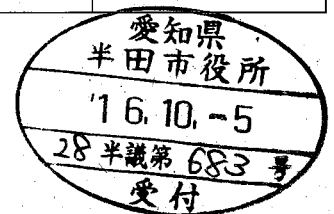 愛知県
半田市役所
'16.10.-5
28半議第683号
受付